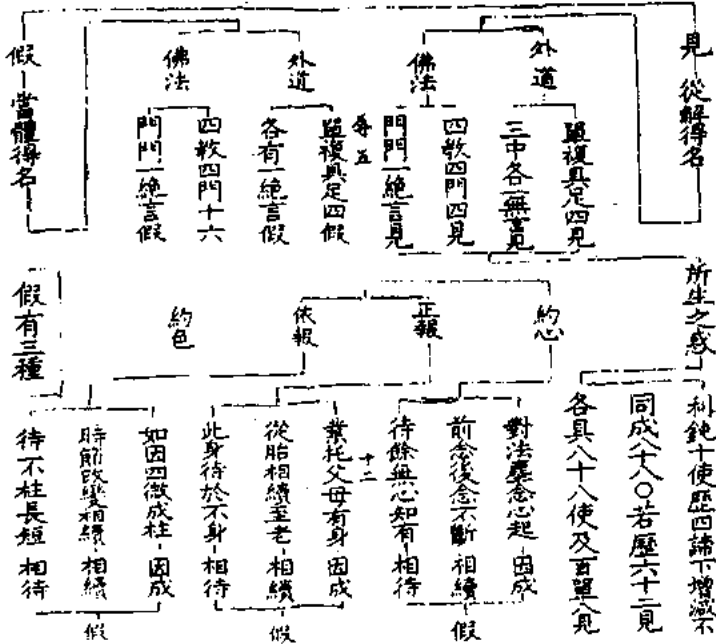 見 從解得名
外道
單複具足四見
三中各一無言見
佛法
四教四門四見
門門一絕言見
卷五
外道
單複具足四假
各有一絕言假
佛法
四教四門十六
門門一絕言假
假 當體得名
所生之惑
利鈍十使歷四諦下增減不
同成八十八〇若歷六十二見
各具八十八使及百單八見
約心
對法塵念心起-因成
前念後念不斷-相續
待餘無心知有-相待
假
十二
正報
業托父母有身-因成
從胎相續至老-相續
此身待於不身-相待
假
依報
約色
如因四微成柱-因成
時節改變相續-相續
待不柱長短-相待
假
假有三種